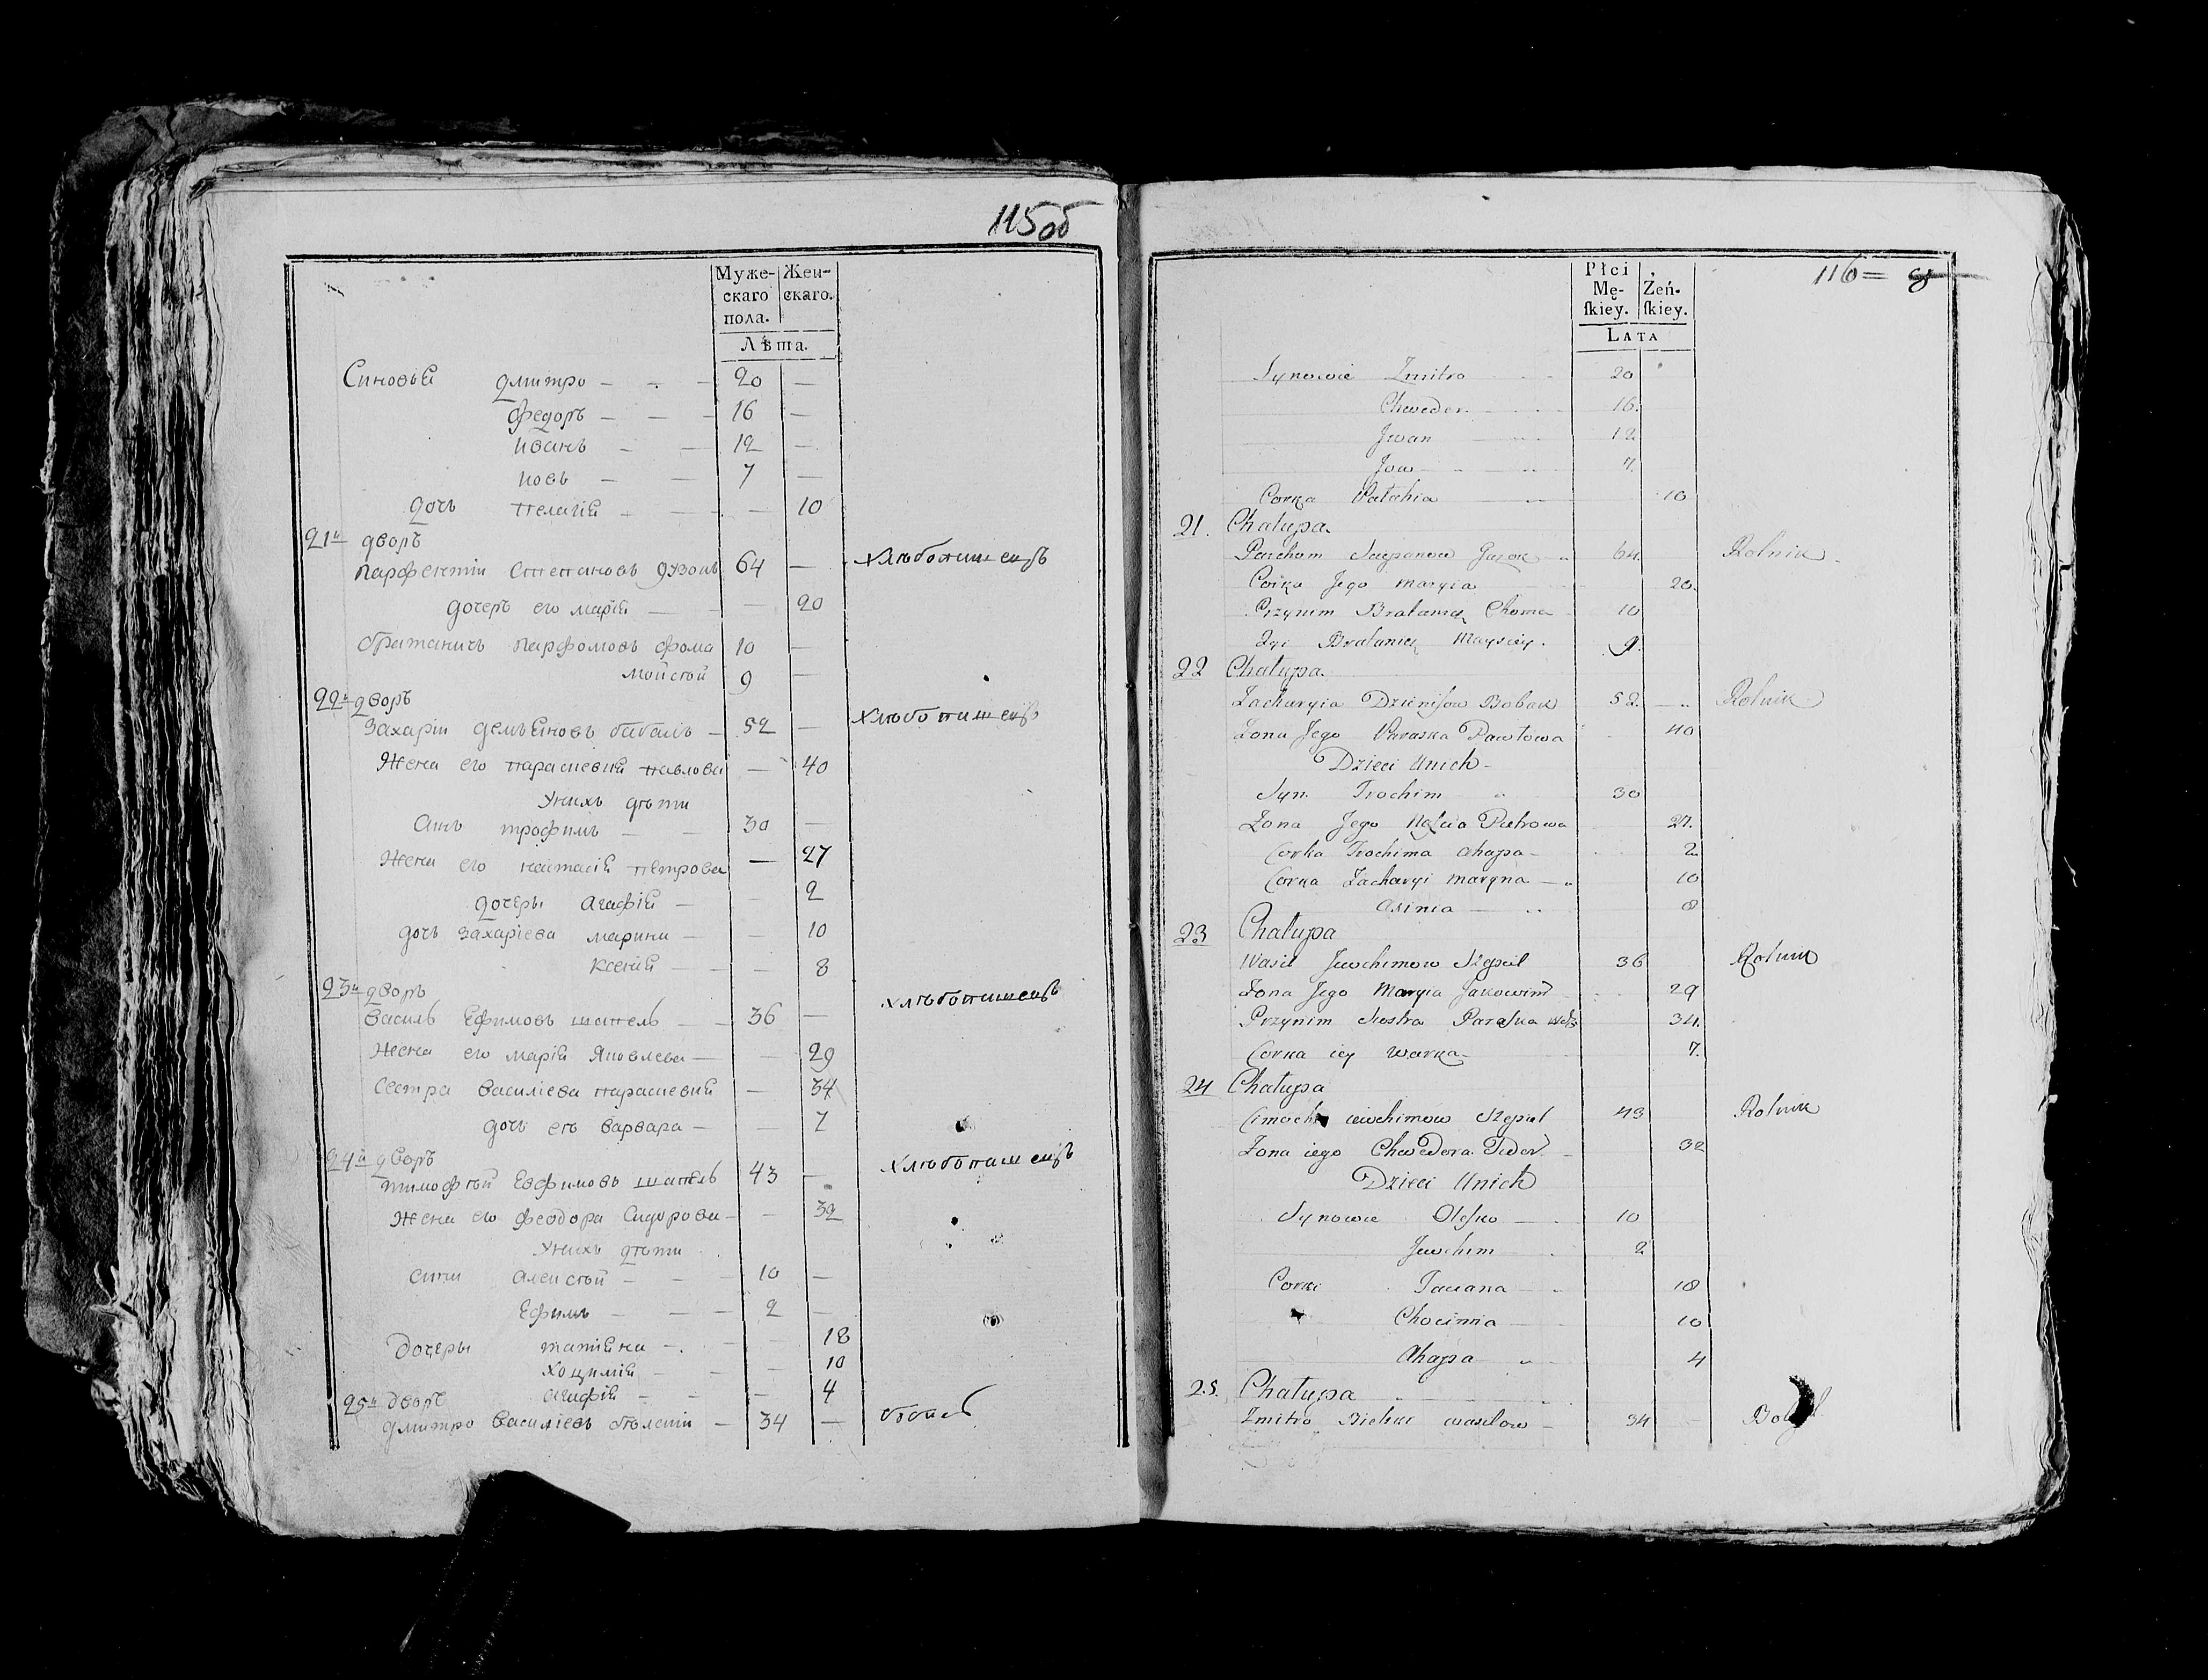 115об
Муже- Жен-
скаго скаго.
пола.
Лѣта.
Синовья Дмитро 20 —
Федоръ — 16 —
Иванъ — 12 —
Иовъ — 7 —
Дочъ Пелагія — 10
21й дворъ
Парфентій Степановъ 64 — Хлѣбопашецъ
дочеръ его Марія — 20
братаничъ Парфомовъ Фома 10 —
Мойсей 9 —
22й дворъ
Захарій Демъяновъ 52 — Хлѣбопашецъ
Жена его Парасковія Павлова — 40
У нихъ дѣти
Синъ Трофимъ — 30 —
Жена его Настасія Петрова — 27
дочеры Агафія — 2
дочъ Захаріева Марина — 10
Ксенія — 8
23й дворъ
Василь Ефимовъ Шапель — 36 — Хлѣбопашецъ
Жена его Марія Яковлева — 29
Сестра Василіева Парасковія — 34
дочъ его Варвара — 7
24й дворъ
Тимофѣй Евфимовъ Шапель 43 — Хлѣбопашецъ
Жена его Феодора Сидорова — 32
У нихъ дѣти
сини Алексѣй — 10 —
Ефимъ — 2 —
Дочеры Татіяна — 18
Хоцимія — 10
Агафія — 4
25й дворъ
Дмитро Василіевъ 34 —
116=
Płci
Mę- Żeń-
ſkiey. ſkiey.
Lata
Synowie Zmitro 20
Chweder 16
Jwan 12
Jow 7
Corka Pałahia 10
21. Chałupa
Parchom 64 Rolnik
Corka Jego Maryia 20
Przyim Bratanicz Choma 10
Bratanicz Maysiey 9
22 Chałupa
Zacharyia Dzieniſow Babak 52 Rolnik
Zona Jego Paraska Pawłowa 40
Dzieci Unich
Syn Trochim 30
Zona Jego Naścia Pietrowa 27
Corka Trochima Ahapa 2
Corka Zacharyi Maryna 10
Asinia 8
23 Chałupa
Wasil Jewchimow Szepiel 36 Rolnik
Zona Jego Maryia 29
Przyim Siostra Paraska 34
Corka iey Warka 7
24 Chałupa
Cimoch iewchimow Szepiel 43 Rolnik
Zona iego Chwedora 32
Dzieci Unich
Synowie Oleſko 10
Jewchim 2
Corki Taciana 18
Chocimia 10
Ahapa 4
25. Chałupa
Zmitro wasilow 34